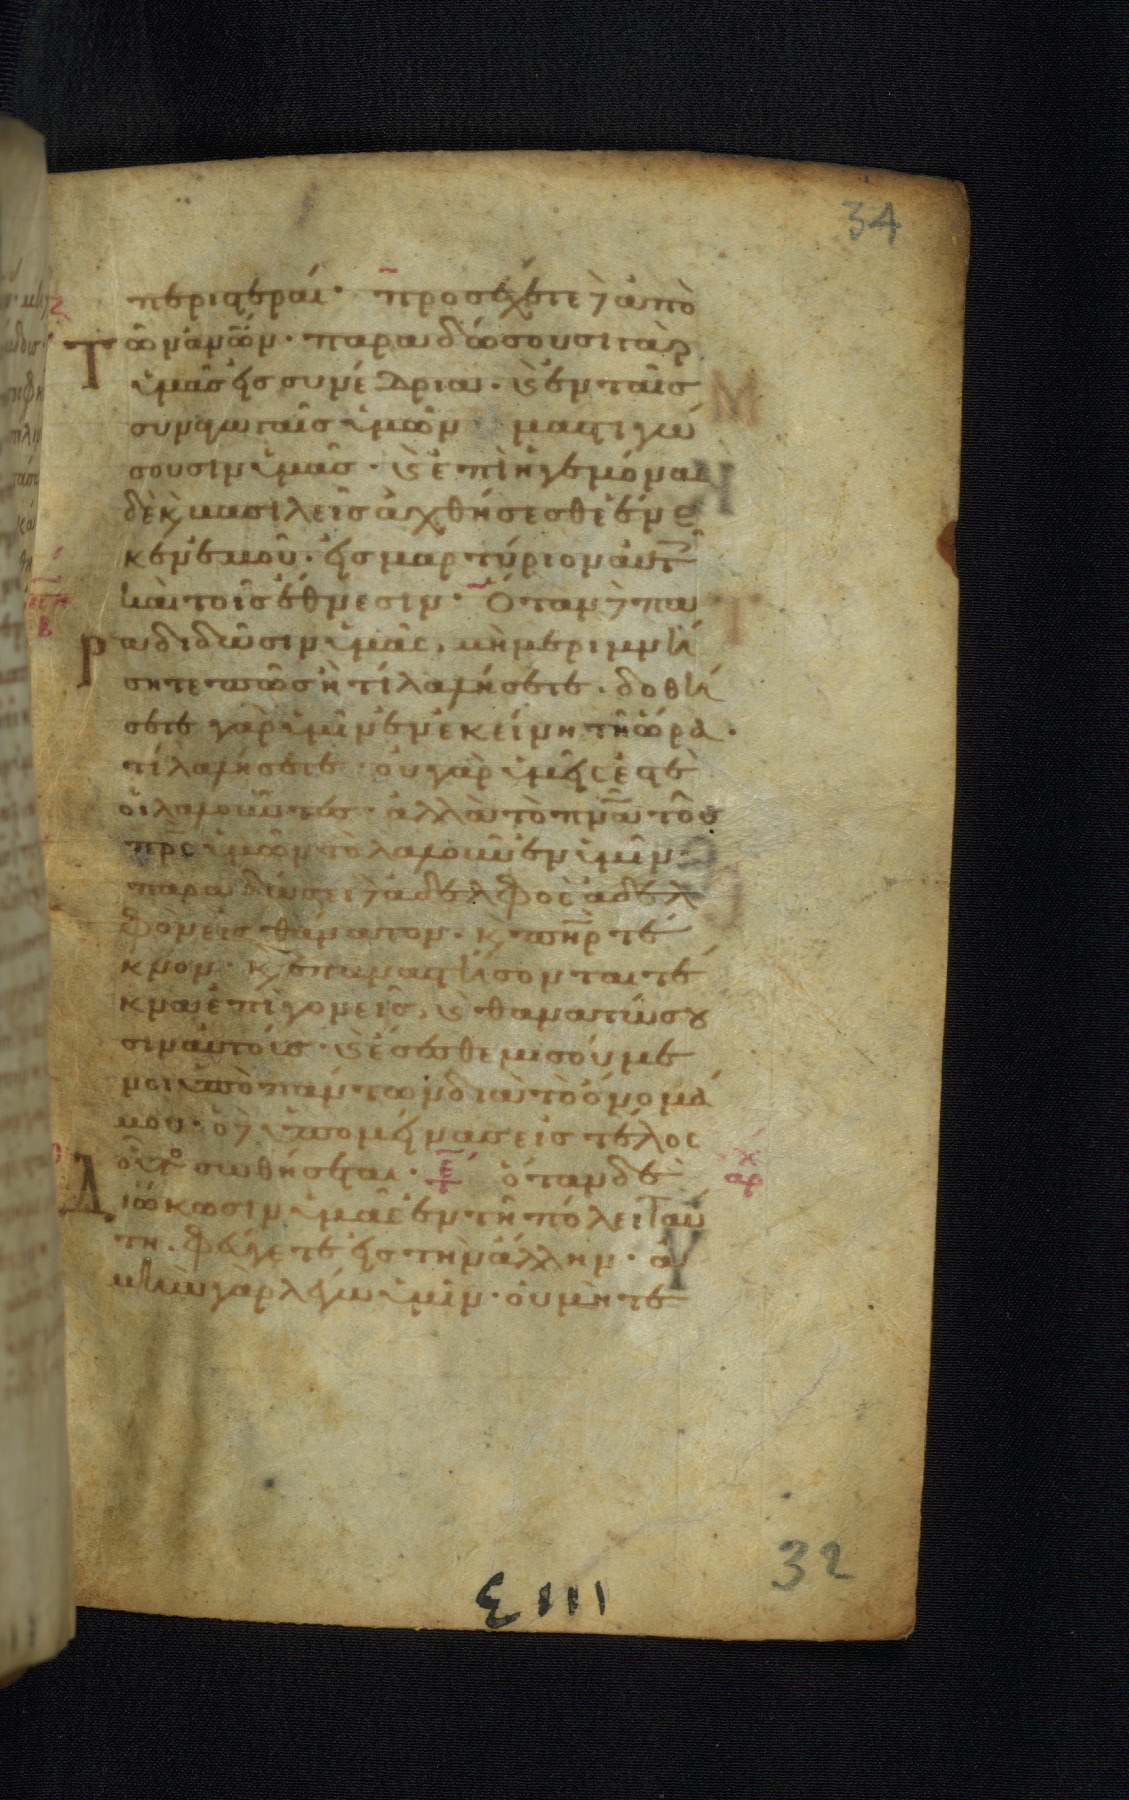 34
περιστεραί· προσέχετε δὲ ἀπὸ
τῶν ἀνων· παραδώσουσι γὰρ
ὑμᾶς εἰς συνέδρια· καὶ ἐν ταῖς
συναγωγαῖς ὑμῶν μαστιγώ
σουσιν ὑμᾶς· καὶ ἐπὶ ἡγεμόνας
δὲ καὶ βασιλεῖς ἀχθήσεσθε ἕνε
κεν ἐμοῦ· εἰς μαρτύριον αὐτ
καὶ τοῖς ἔθνεσιν· Ὅταν δὲ πα
ραδιδῶσιν ὑμᾶς, μὴ μεριμνή
σητε πῶς ἢ τί λαλήσετε· δοθή
σεται γὰρ ὑμῖν ἐν ἐκείνη τῆ ὥρα·
τί λαλήσετε· οὐ γὰρ ὑμεῖς ἐστὲ
οἱ λαλοῦντες· ἀλλὰ τὸ πνα τοῦ
πρς ὑμῶν τὸ λαλοῦν ἐν ὑμῖν·
παραδώσει δὲ ἀδελφὸς ἀδελ
φὸν εἰς θάνατον· καὶ πηρ τέ
κνον· καὶ ἐπαναστήσονται τέ
κνα ἐπὶ γονεῖς, καὶ θανατώσου
σιν αὐτούς· καὶ ἔσεσθε μισούμε
νοι ὑπὸ πάντων διὰ τὸ ὄνομά
μου· ὁ δὲ ὑπομείνας εἰς τέλος
οὗτος σωθήσεται· ὅταν δὲ
διώκωσιν ὑμᾶς ἐν τῆ πόλει ταύ
τη· φεύγετε εἰς τὴν ἄλλην· ἀ
μὴν γὰρ λέγω ὑμῖν· οὐ μὴ τε
32